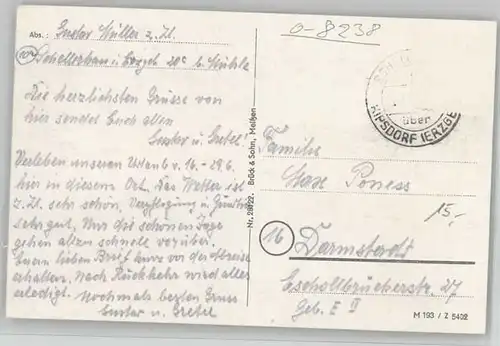 Abs.: Gustav Müller z. Zt.
(10) Schellerhau i. Erzgeb 20c b. Mühle
Die herzlichsten Grüsse von
hier sendet Euch allen
Gustav u. Gretel.
Verleben unseren Urlaub v. 16.-29.6.
hier in diesem Ort. Das Wetter ist
z. Zt. sehr schön, Verpflegung u.
sehr gut. Nur die schönen Tage
gehen allzu schnell vorüber.
Euern lieben Brief kurz vor der Abreise
erhalten. Nach Rückkehr wird alles
erledigt. Nochmals besten Gruss
Gustav u. Gretel
Nr. 28722. Brück & Sohn, Meißen
0-8238
über
KIPSDORF (ERZGEB
Familie
Poness
15,-
(16) Darmstadt
Eschollbrückerstr. 27
Geb. E II
M 193 / Z 5402